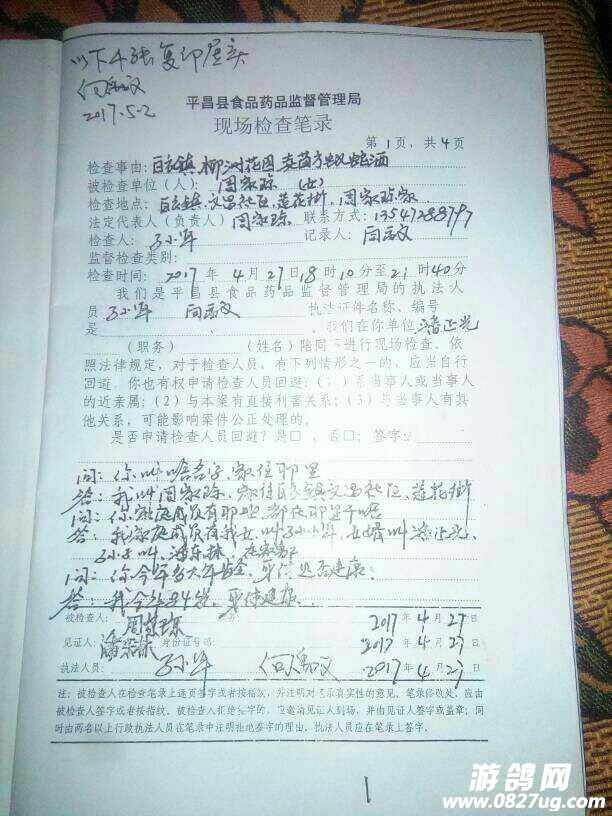 以下4张复印属实
2017.5.2
平昌县食品药品监督管理局
现场检查笔录
第1页，共4页
检查事由：白衣镇柳湖花园卖蚂蚁蛇酒
被检查单位（人）：周家琼（女）
检查地点：白衣镇文昌社区莲花街，周家琼家
法定代表人（负责人）周家琼 联系方式：13547288797
检查人： 记录人：
监督检查类别：
检查时间：2017年4月27日18时10分至21时40分
我们是平昌县食品药品监督管理局的执法人
员 执法证件名称、编号
是 、 ，我们在你单位 潘正光
（职务） （姓名）陪同下进行现场检查，依
照法律规定，对于检查人员，有下列情形之一的，应当自行
回避，你也有权申请检查人员回避：（1）系当事人或当事人
的近亲属；（2）与本案有直接利害关系；（3）与当事人有其
他关系，可能影响案件公正处理的。
是否申请检查人员回避？是□，否□；签字：
问：你叫啥名字，家住那里
答：我叫周家琼，家住白衣镇文昌社区，莲花街
问：你家庭成员有那些，都在那里干啥
答：我家庭成员有我女，叫 ，女婿叫潘正光，
孙子叫
问：你今年多大年龄，身体是否健康
答：我今年84岁，身体健康。
被检查人：周家琼 2017年4月27日
见证人： 身份证号码： 2017年4月27日
执法人员： 2017年4月27日
注：被检查人在检查笔录上逐页签字或者按指纹，并注明对笔录真实性的意见。笔录修改处，应由
被检查人签字或者按指纹。被检查人拒绝签字的，应邀请见证人到场，并由见证人签字或盖章；同
时由两名以上行政执法人员在笔录中注明拒绝签字的理由，执法人员应在笔录上签字。
1
游鸽网
www.0827ug.com